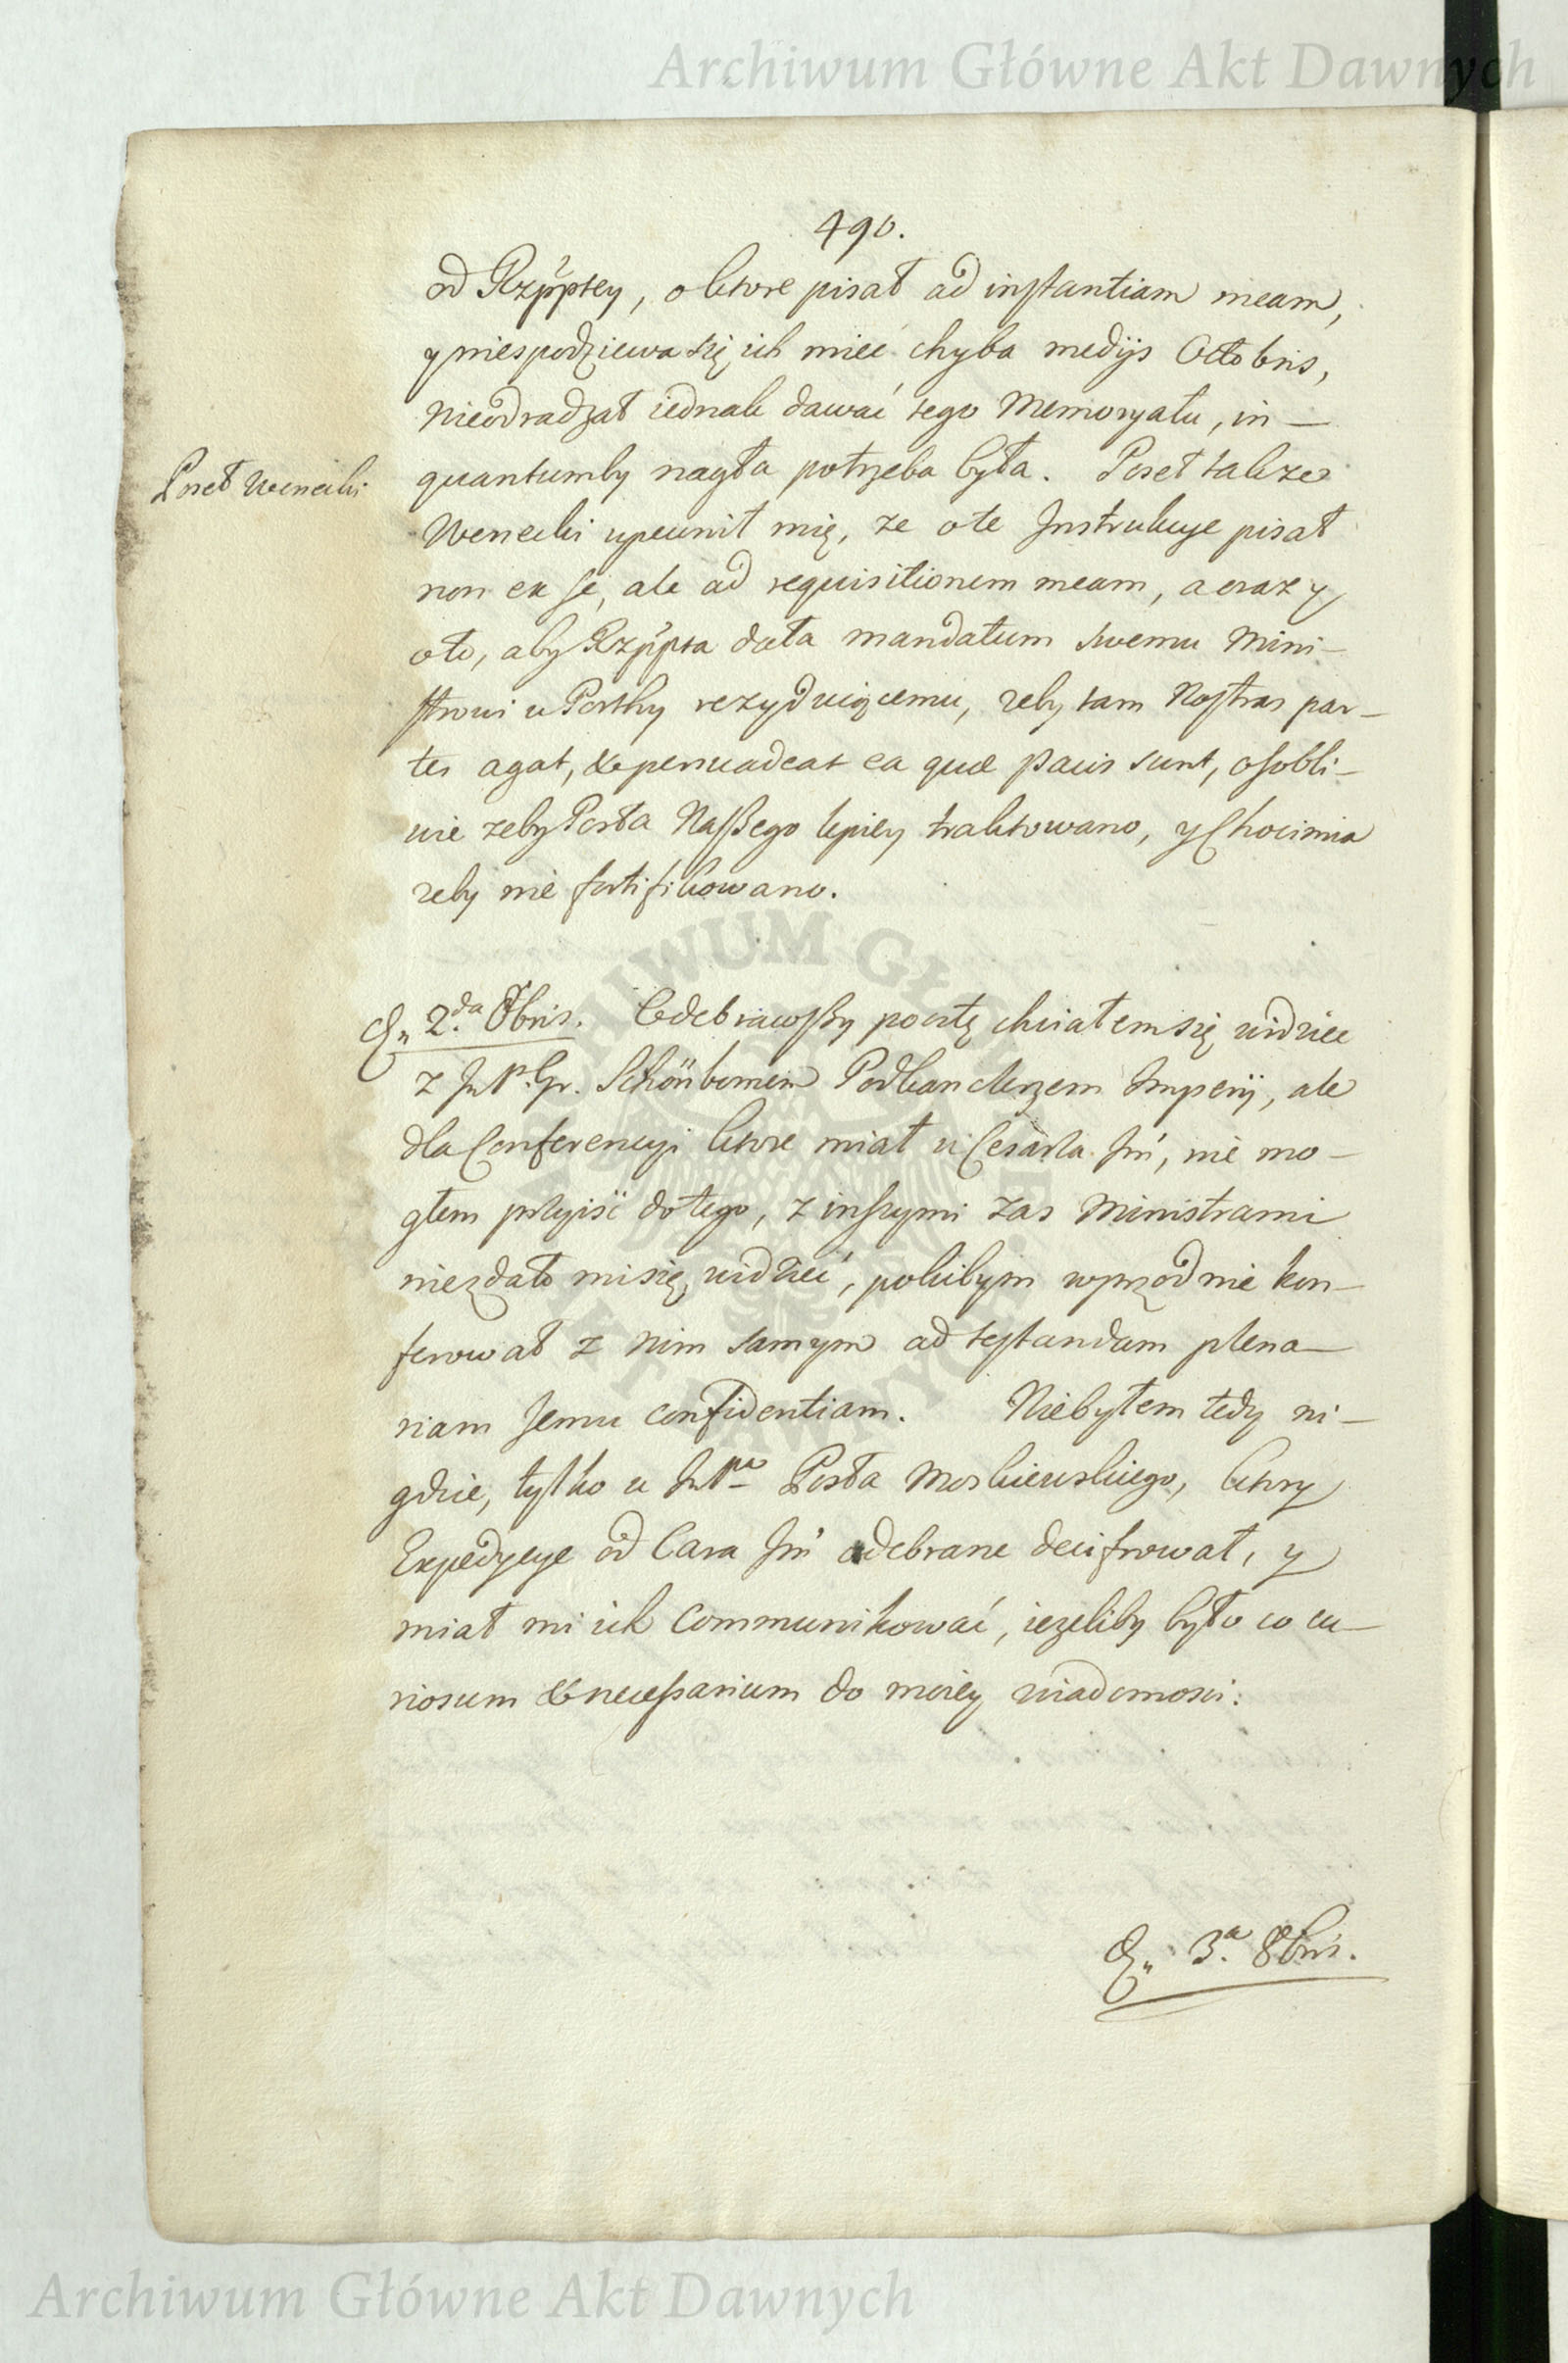 Archiwum Główne Akt Dawnych
490.
od Rzp̃ptey, o ktore pisał ad instantiam meam,
y niespodziewa się ich miec chyba medijs Octobris,
Nieodradzał iednak dawać tego Memoryału, in—
Poseł Wenecki
quantumby nagła potrzeba była. Poseł takze
Wenecki upewnił mię, ze o te Instrukcye pisał
non ex se, ale ad requisitionem meam, a oraz y
oto, aby Rzp̃pta dała mandatum swemu Mini—
strowi u Portky rezyduiącemu, zeby tam Nostras par—
tes agat, & persuadeat ea quæ Pacis sunt, osobli—
wie zeby Posła Naszego lepiey traktowano, y Chocimia
zeby nie fortifikowano.
D„ 2.da 8bris. Odebrawszy pocztę chciałem się widziec
z JmP. Gr. Schönbornem Podkanclerzem Imperij, ale
dla Conferencyi ktore miał u Cesarza Jm̃, nie mo—
głem przyiść do tego, z inszymi zas Ministrami
niezdało mi się widzieć, pokibym wprzod nie kon—
ferował z nim samym ad testandam plena—
riam Jemu confidentiam. Niebyłem tedy ni—
gdzie, tylko u JmPna Posła Moskiewskiego, ktory
Expedycye od Cara Jm̃ odebrane decifrował, y
miał mi ich Communikować, iezeliby było co cu—
riosum & necessarium do moiey wiadomosci.
D„ 3.a 8bris.
Archiwum Główne Akt Dawnych